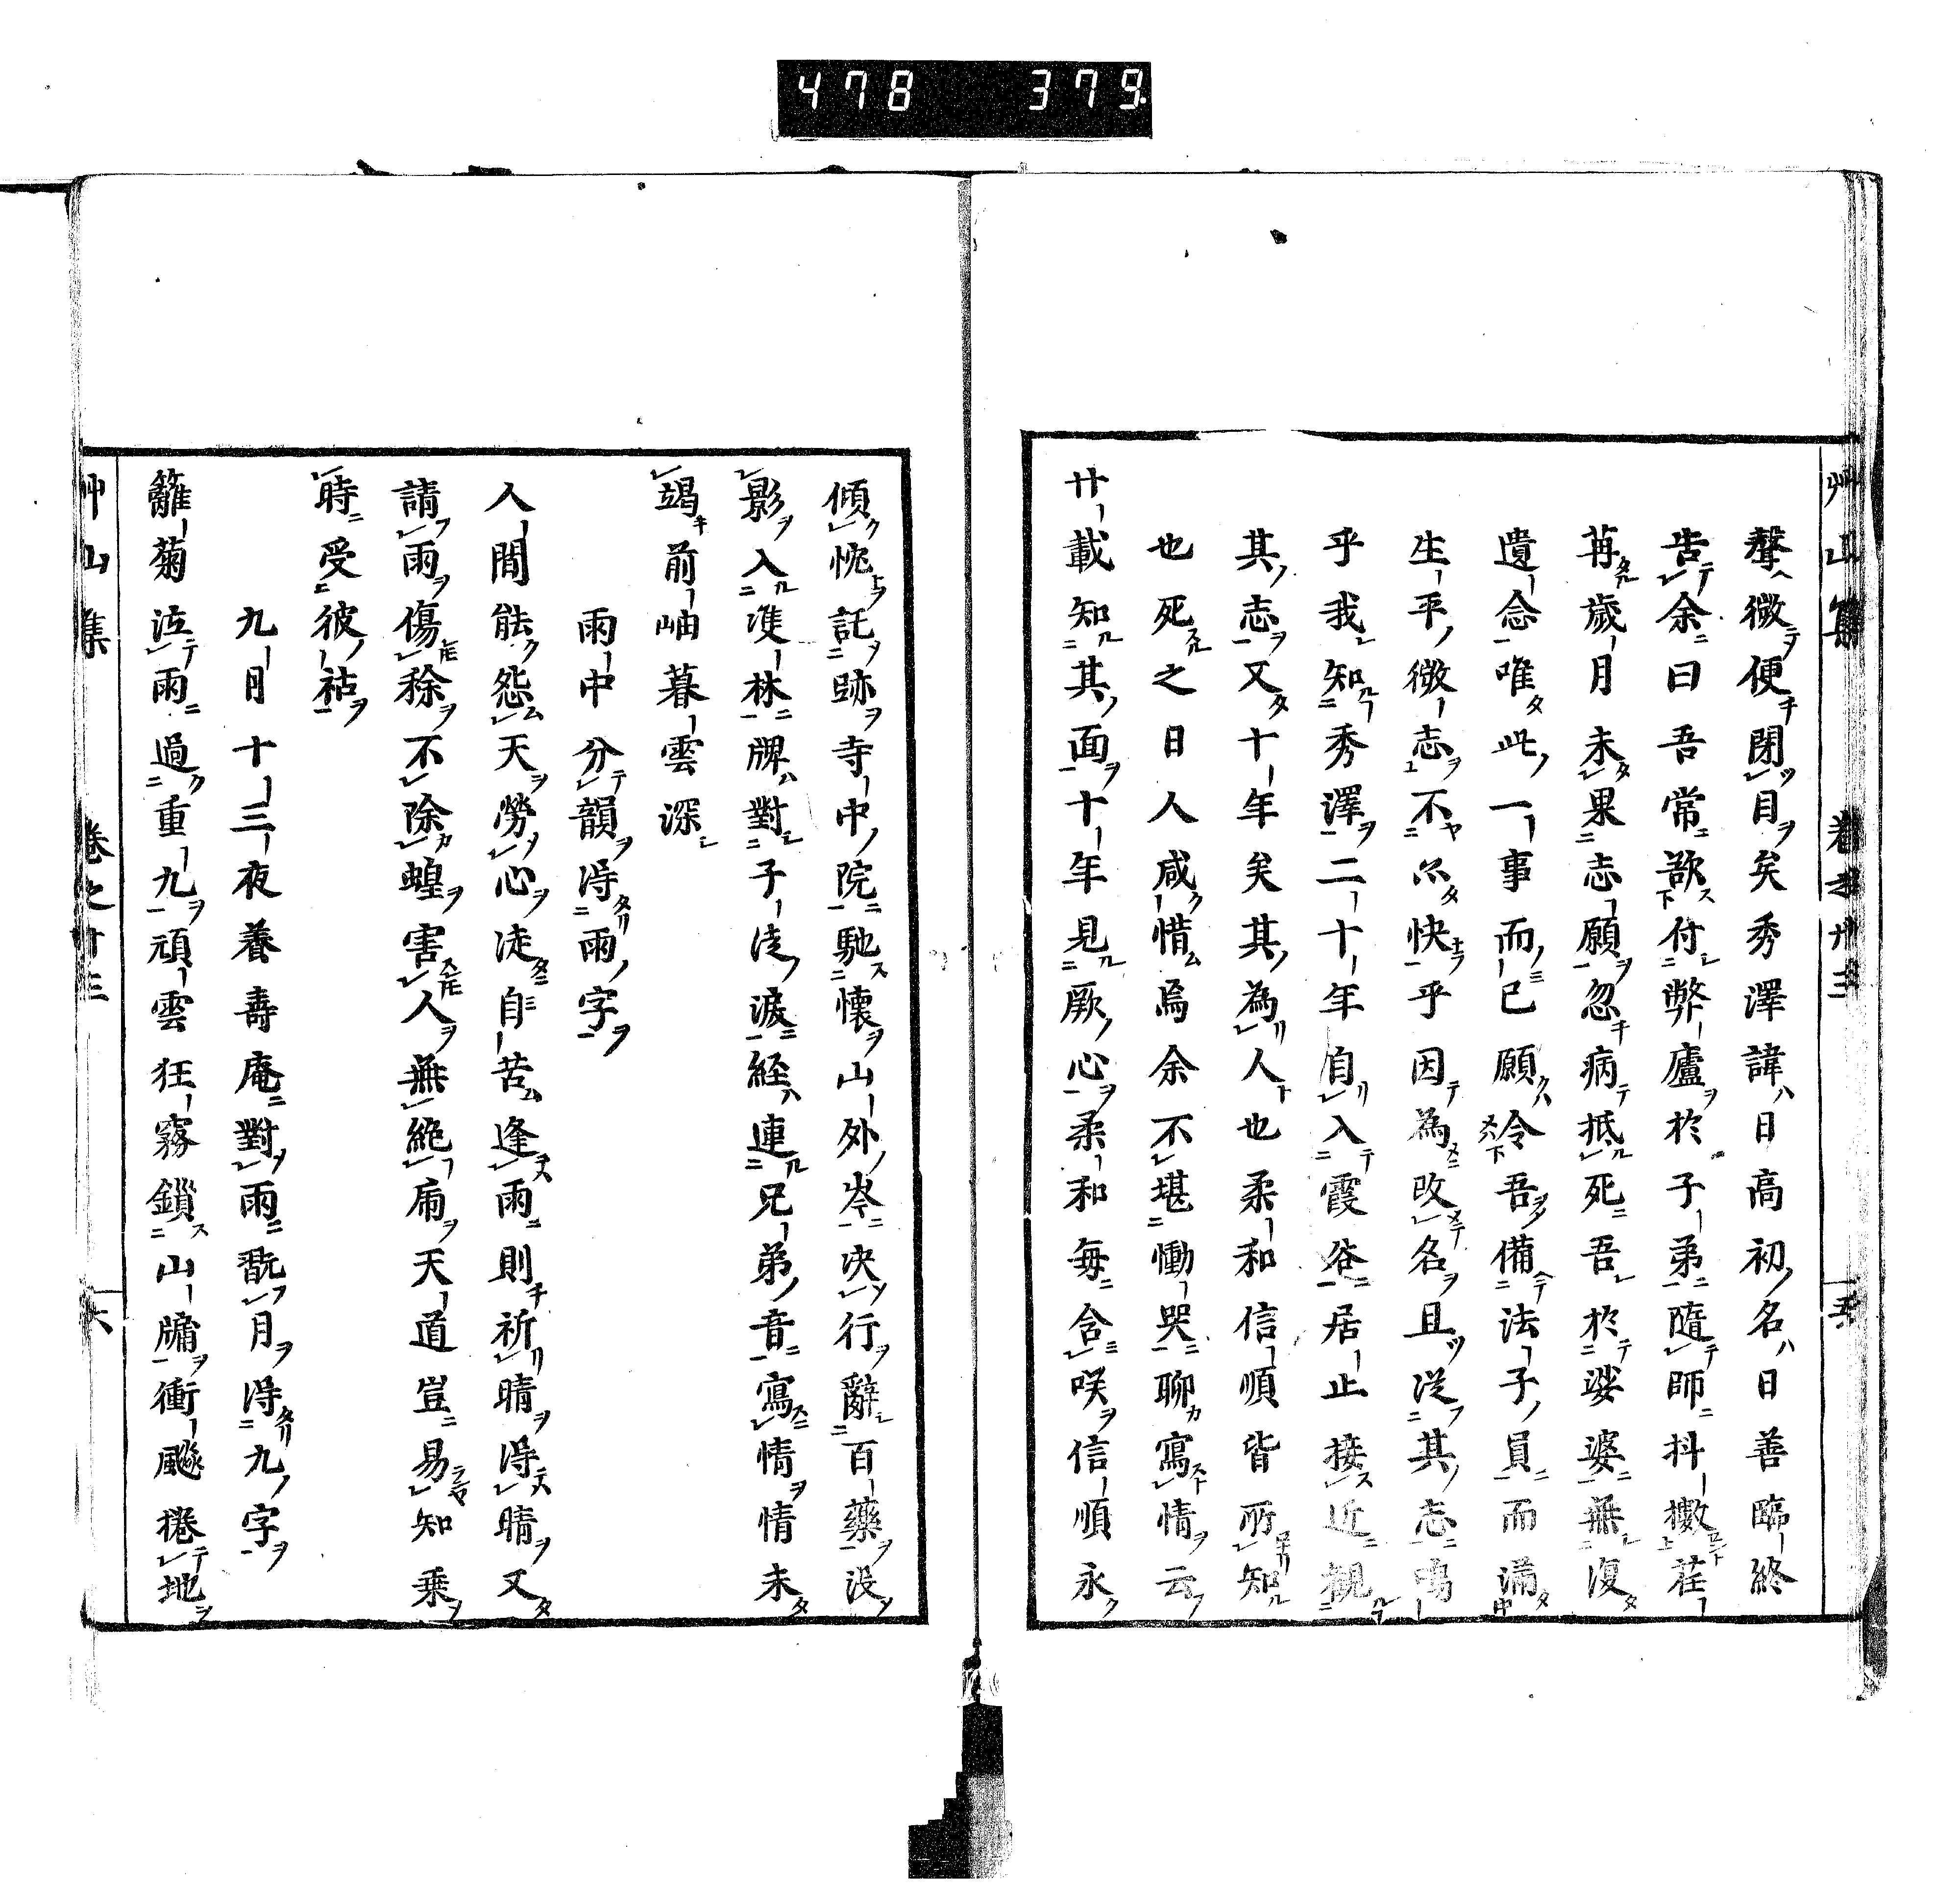 478 379
艸山集 卷之廿三 十五
聲微便閉目矣秀澤諱日高初名日善臨終
告余曰吾常欲付弊廬於子弟隨師抖擻荏
苒歲月未果志願忽病抵死吾於娑婆無復
遺念唯此一事而已願令吾備法子員而滿
生平微志不亦快乎因為改名且從其志嗚
乎我知秀澤二十年自入霞谷居止接近觀
其志又十年矣其為人也柔和信順皆所知
也死之日人咸惜焉余不堪慟哭聊寫情云
廿載知其面十年見厥心柔和每含咲信順永
傾忱託跡寺中院馳懷山外岑决行辭百藥没
影入雙林牌對子徒淚經連兄弟音寫情情未
竭前岫暮雲深
雨中分韻得雨字
人間能怨天勞心徒自苦逢雨則祈晴得晴又
請雨傷稼不除蝗害人無絶痡天道豈易知乗
時受彼祜
九月十三夜養壽庵對雨翫月得九字
籬菊泣雨過重九頑雲狂霧鎖山牖衝飈捲地
艸山集 卷之廿三 十六